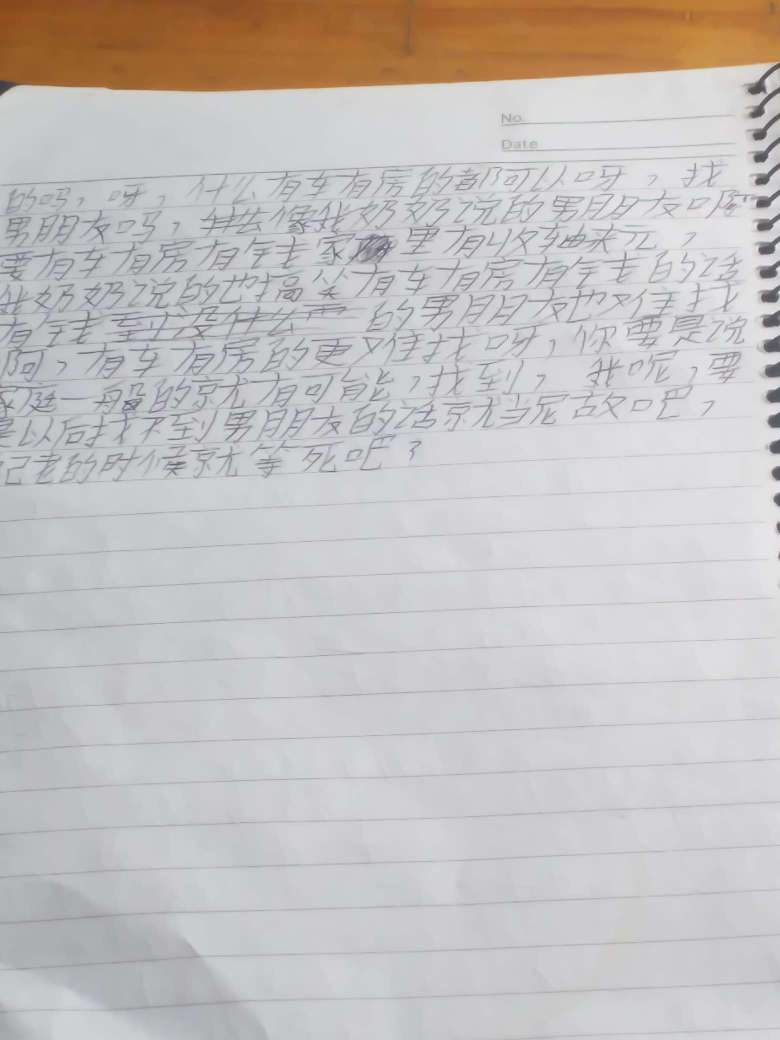 No.
Date
的吗，呀，什么有车有房的都阿以呀，找
男朋友吗，像我奶奶说的男朋友
要有车有房有钱家里有收抽来元，
我奶奶说的也搞笑有车有房有钱的话
有钱到没什么 的男朋友也难找
阿，有车有房的更难找呀，你要是说
家庭一般的就有可能，找到，我呢，要
是以后找不到男朋友的话就当尼故吧，
记老的时候就等死吧？